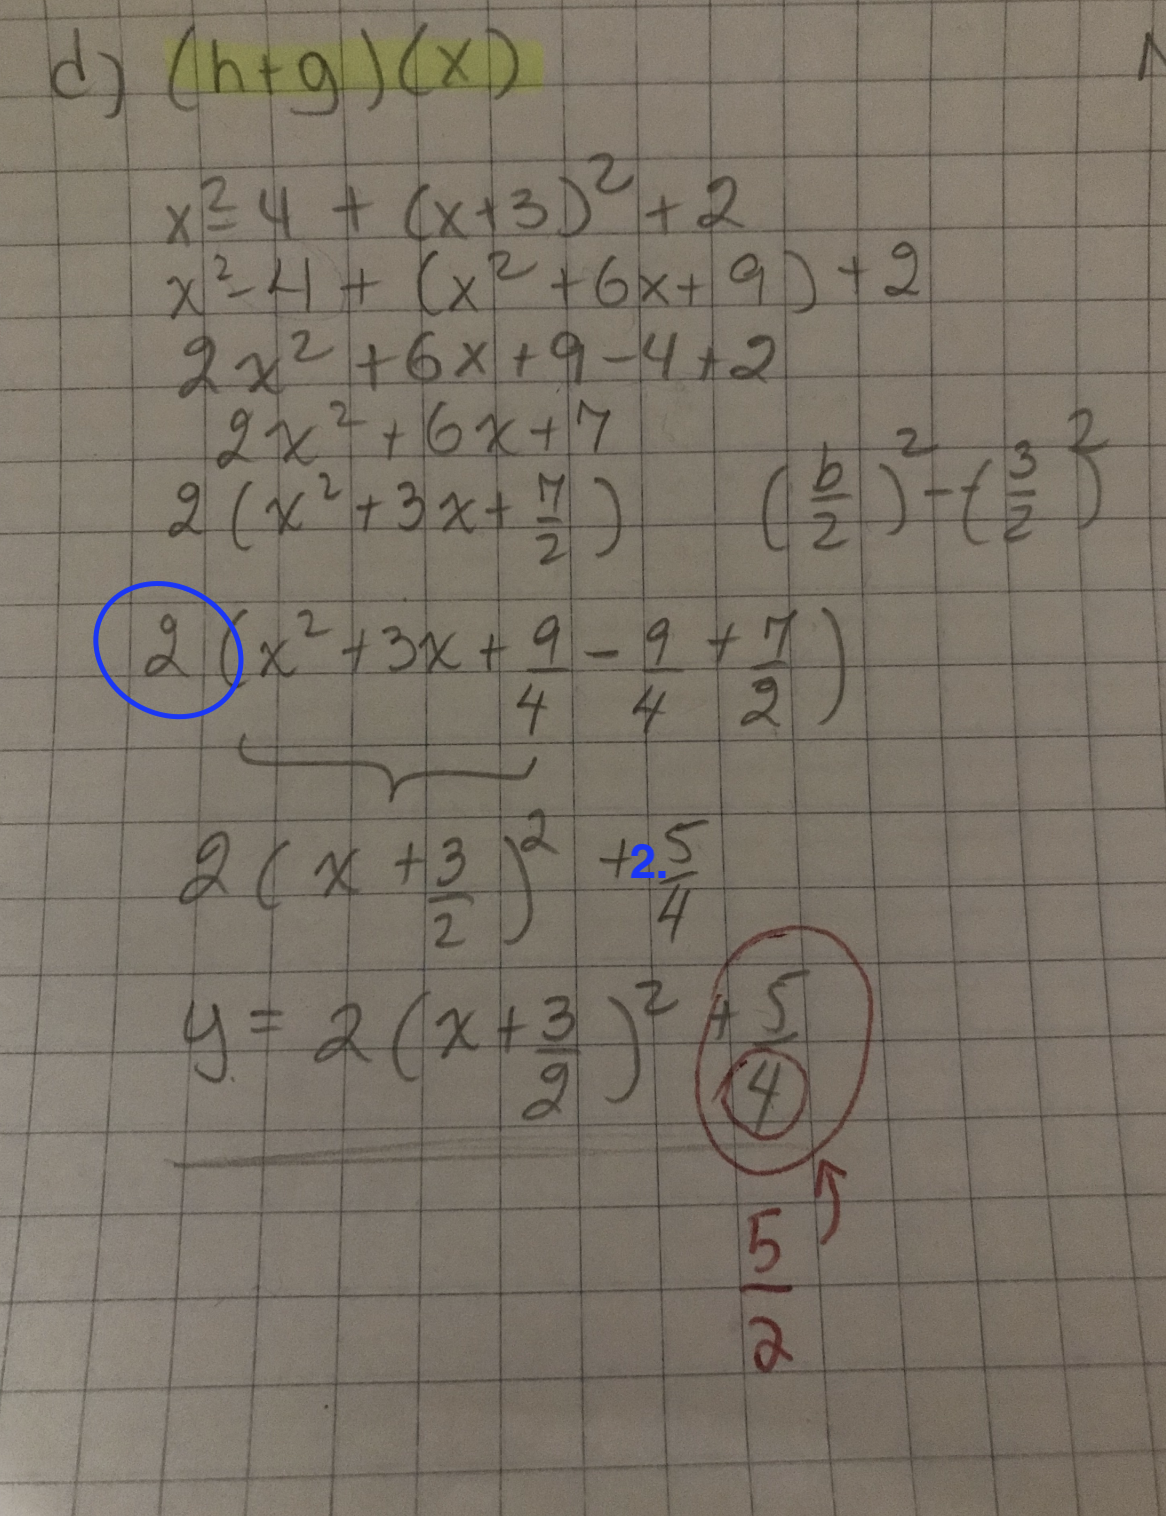 d) (h+g)(x)
x² - 4 + (x+3)² + 2
x² - 4 + (x² + 6x + 9) + 2
2x² + 6x + 9 - 4 + 2
2x² + 6x + 7
2(x² + 3x + 7/2) (b/2)² - (3/2)²
2(x² + 3x + 9/4 - 9/4 + 7/2)
2(x + 3/2)² + 2. 5/4
y = 2(x + 3/2)² + 5/4
5/2